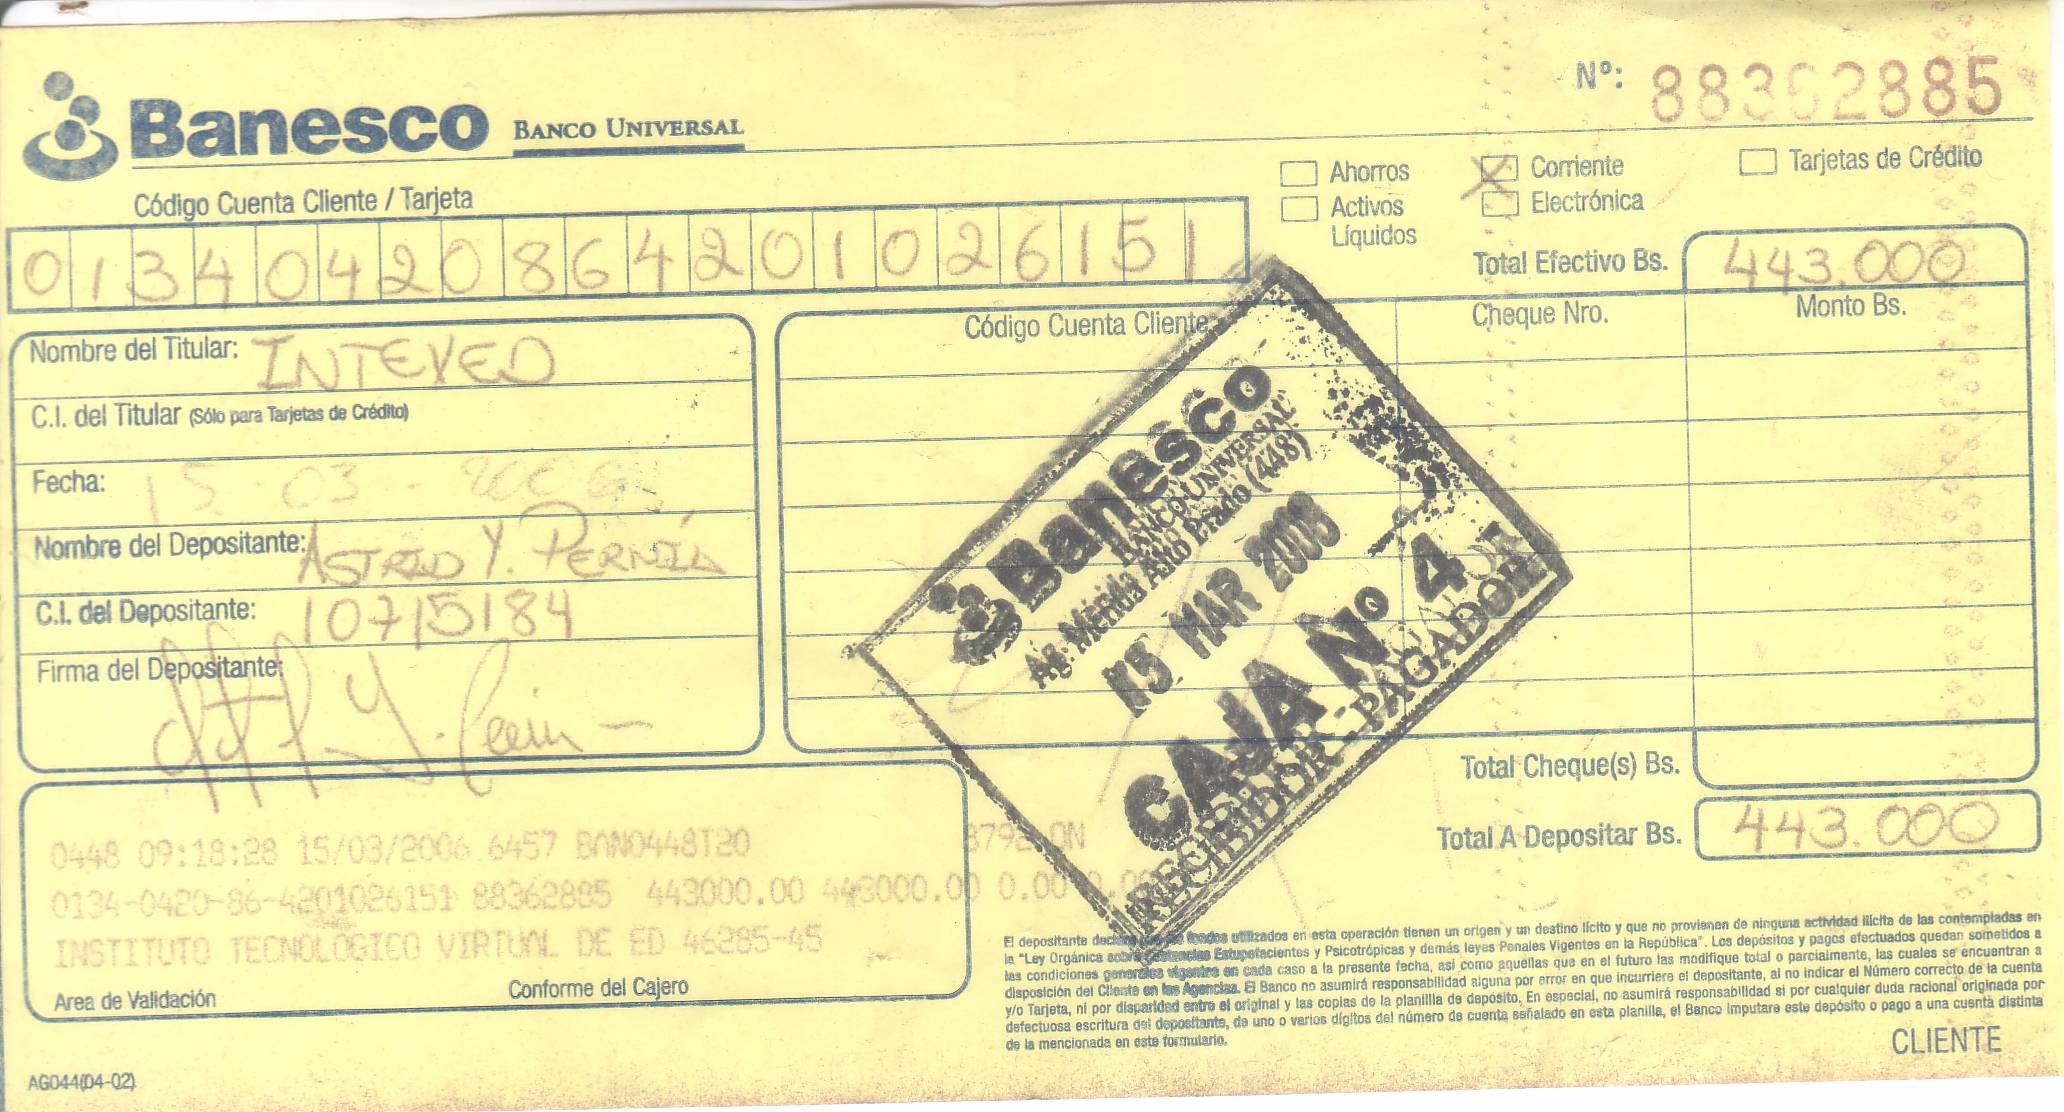 Banesco BANCO UNIVERSAL
Nº: 88362885
Código Cuenta Cliente / Tarjeta
01340420864201026151
Ahorros
Corriente
Tarjetas de Crédito
Activos Líquidos
Electrónica
Total Efectivo Bs. 443.000
Nombre del Titular: INTEVED
C.I. del Titular (Sólo para Tarjetas de Crédito)
Fecha: 15-03-2006
Nombre del Depositante: ASTRID Y. PERNÍA
C.I. del Depositante: 10715184
Firma del Depositante:
Código Cuenta Cliente
Cheque Nro.
Monto Bs.
Banesco
BANCO UNIVERSAL
Ag. Mérida Alto Prado (448)
15 MAR 2006
CAJA Nº 4
RECIBIDOR - PAGADOR
Total Cheque(s) Bs.
Total A Depositar Bs. 443.000
0448 09:18:28 15/03/2006 6457 BAN0448T20 ON
0134-0420-86-4201026151 88362885 443000.00 443000.00 0.00
INSTITUTO TECNOLOGICO VIRTUAL DE ED 46285-45
Area de Validación
Conforme del Cajero
El depositante declara que los fondos utilizados en esta operación tienen un origen y un destino lícito y que no provienen de ninguna actividad ilícita de las contempladas en
la "Ley Orgánica sobre Sustancias Estupefacientes y Psicotrópicas y demás leyes Penales Vigentes en la República". Los depósitos y pagos efectuados quedan sometidos a
las condiciones generales vigentes en cada caso a la presente fecha, así como aquellas que en el futuro las modifique total o parcialmente, las cuales se encuentran a
disposición del Cliente en las Agencias. El Banco no asumirá responsabilidad alguna por error en que incurriere el depositante, al no indicar el Número correcto de la cuenta
y/o Tarjeta, ni por disparidad entre el original y las copias de la planilla de depósito. En especial, no asumirá responsabilidad si por cualquier duda racional originada por
defectuosa escritura del depositante, de uno o varios dígitos del número de cuenta señalado en esta planilla, el Banco imputare este depósito o pago a una cuenta distinta
de la mencionada en este formulario.
CLIENTE
AG044(04-02)